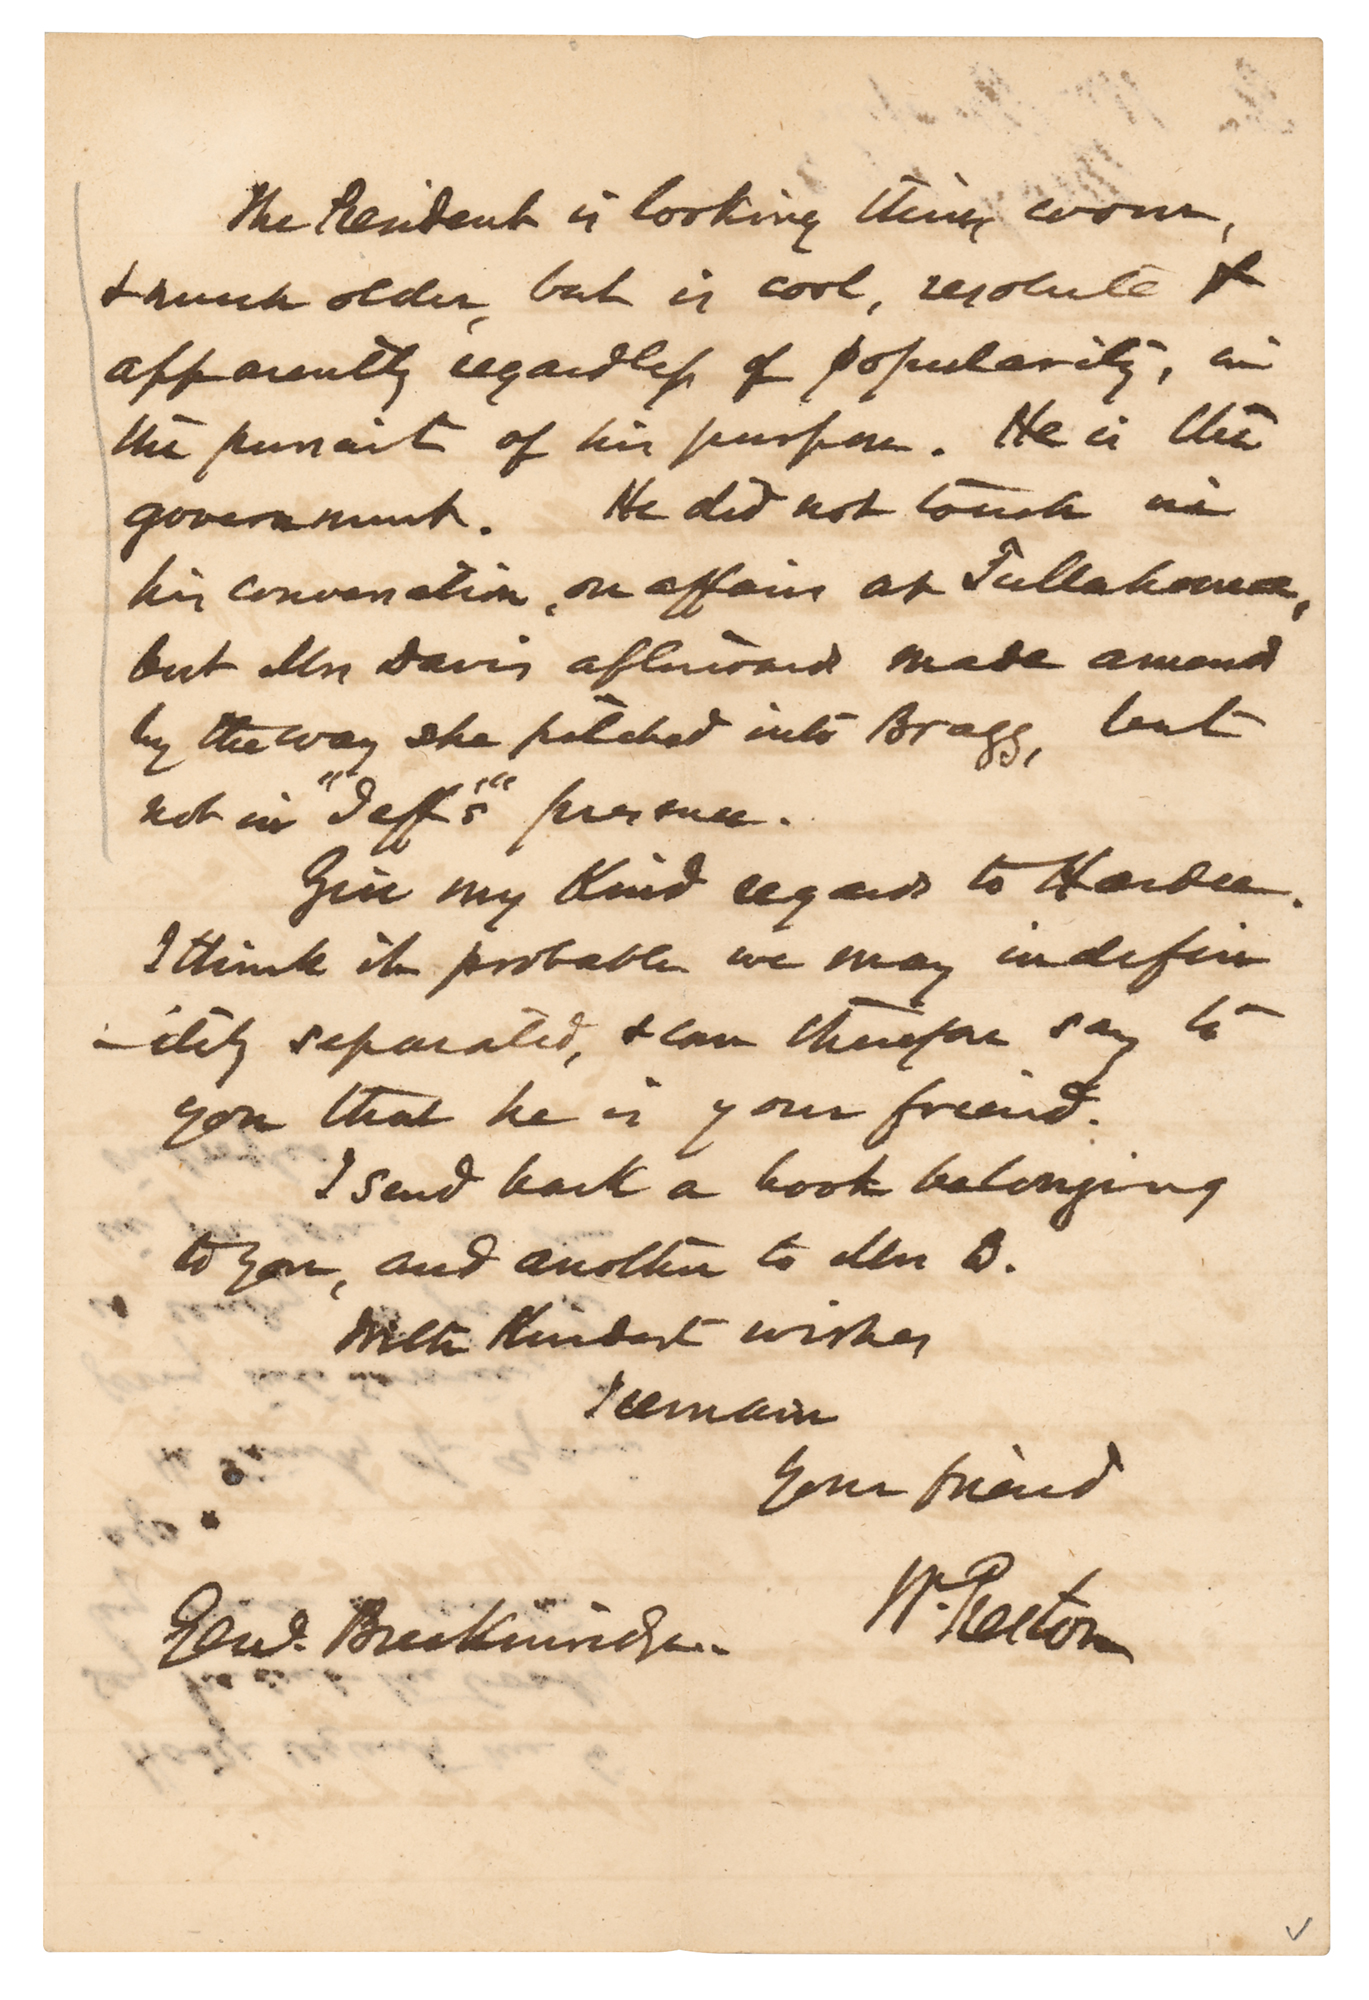 The President is looking thin, worn,
& much older, but is cool, resolute &
apparently regardless of popularity, in
the pursuit of his purpose. He is the
government. He did not touch in
his conversation, on affairs at Tullahoma,
but Mrs Davis afterwards made amend
by the way she pitched into Bragg, but
not in "Jeff's" presence.
Give my Kind regards to Hardee.
I think it probable we may indefin
-itely separated, & can therefore say to
you that he is your friend.
I send back a book belonging
to you, and another to Mrs B.
With Kindest wishes
I remain
Your friend
W. Preston
Genl. Breckinridge